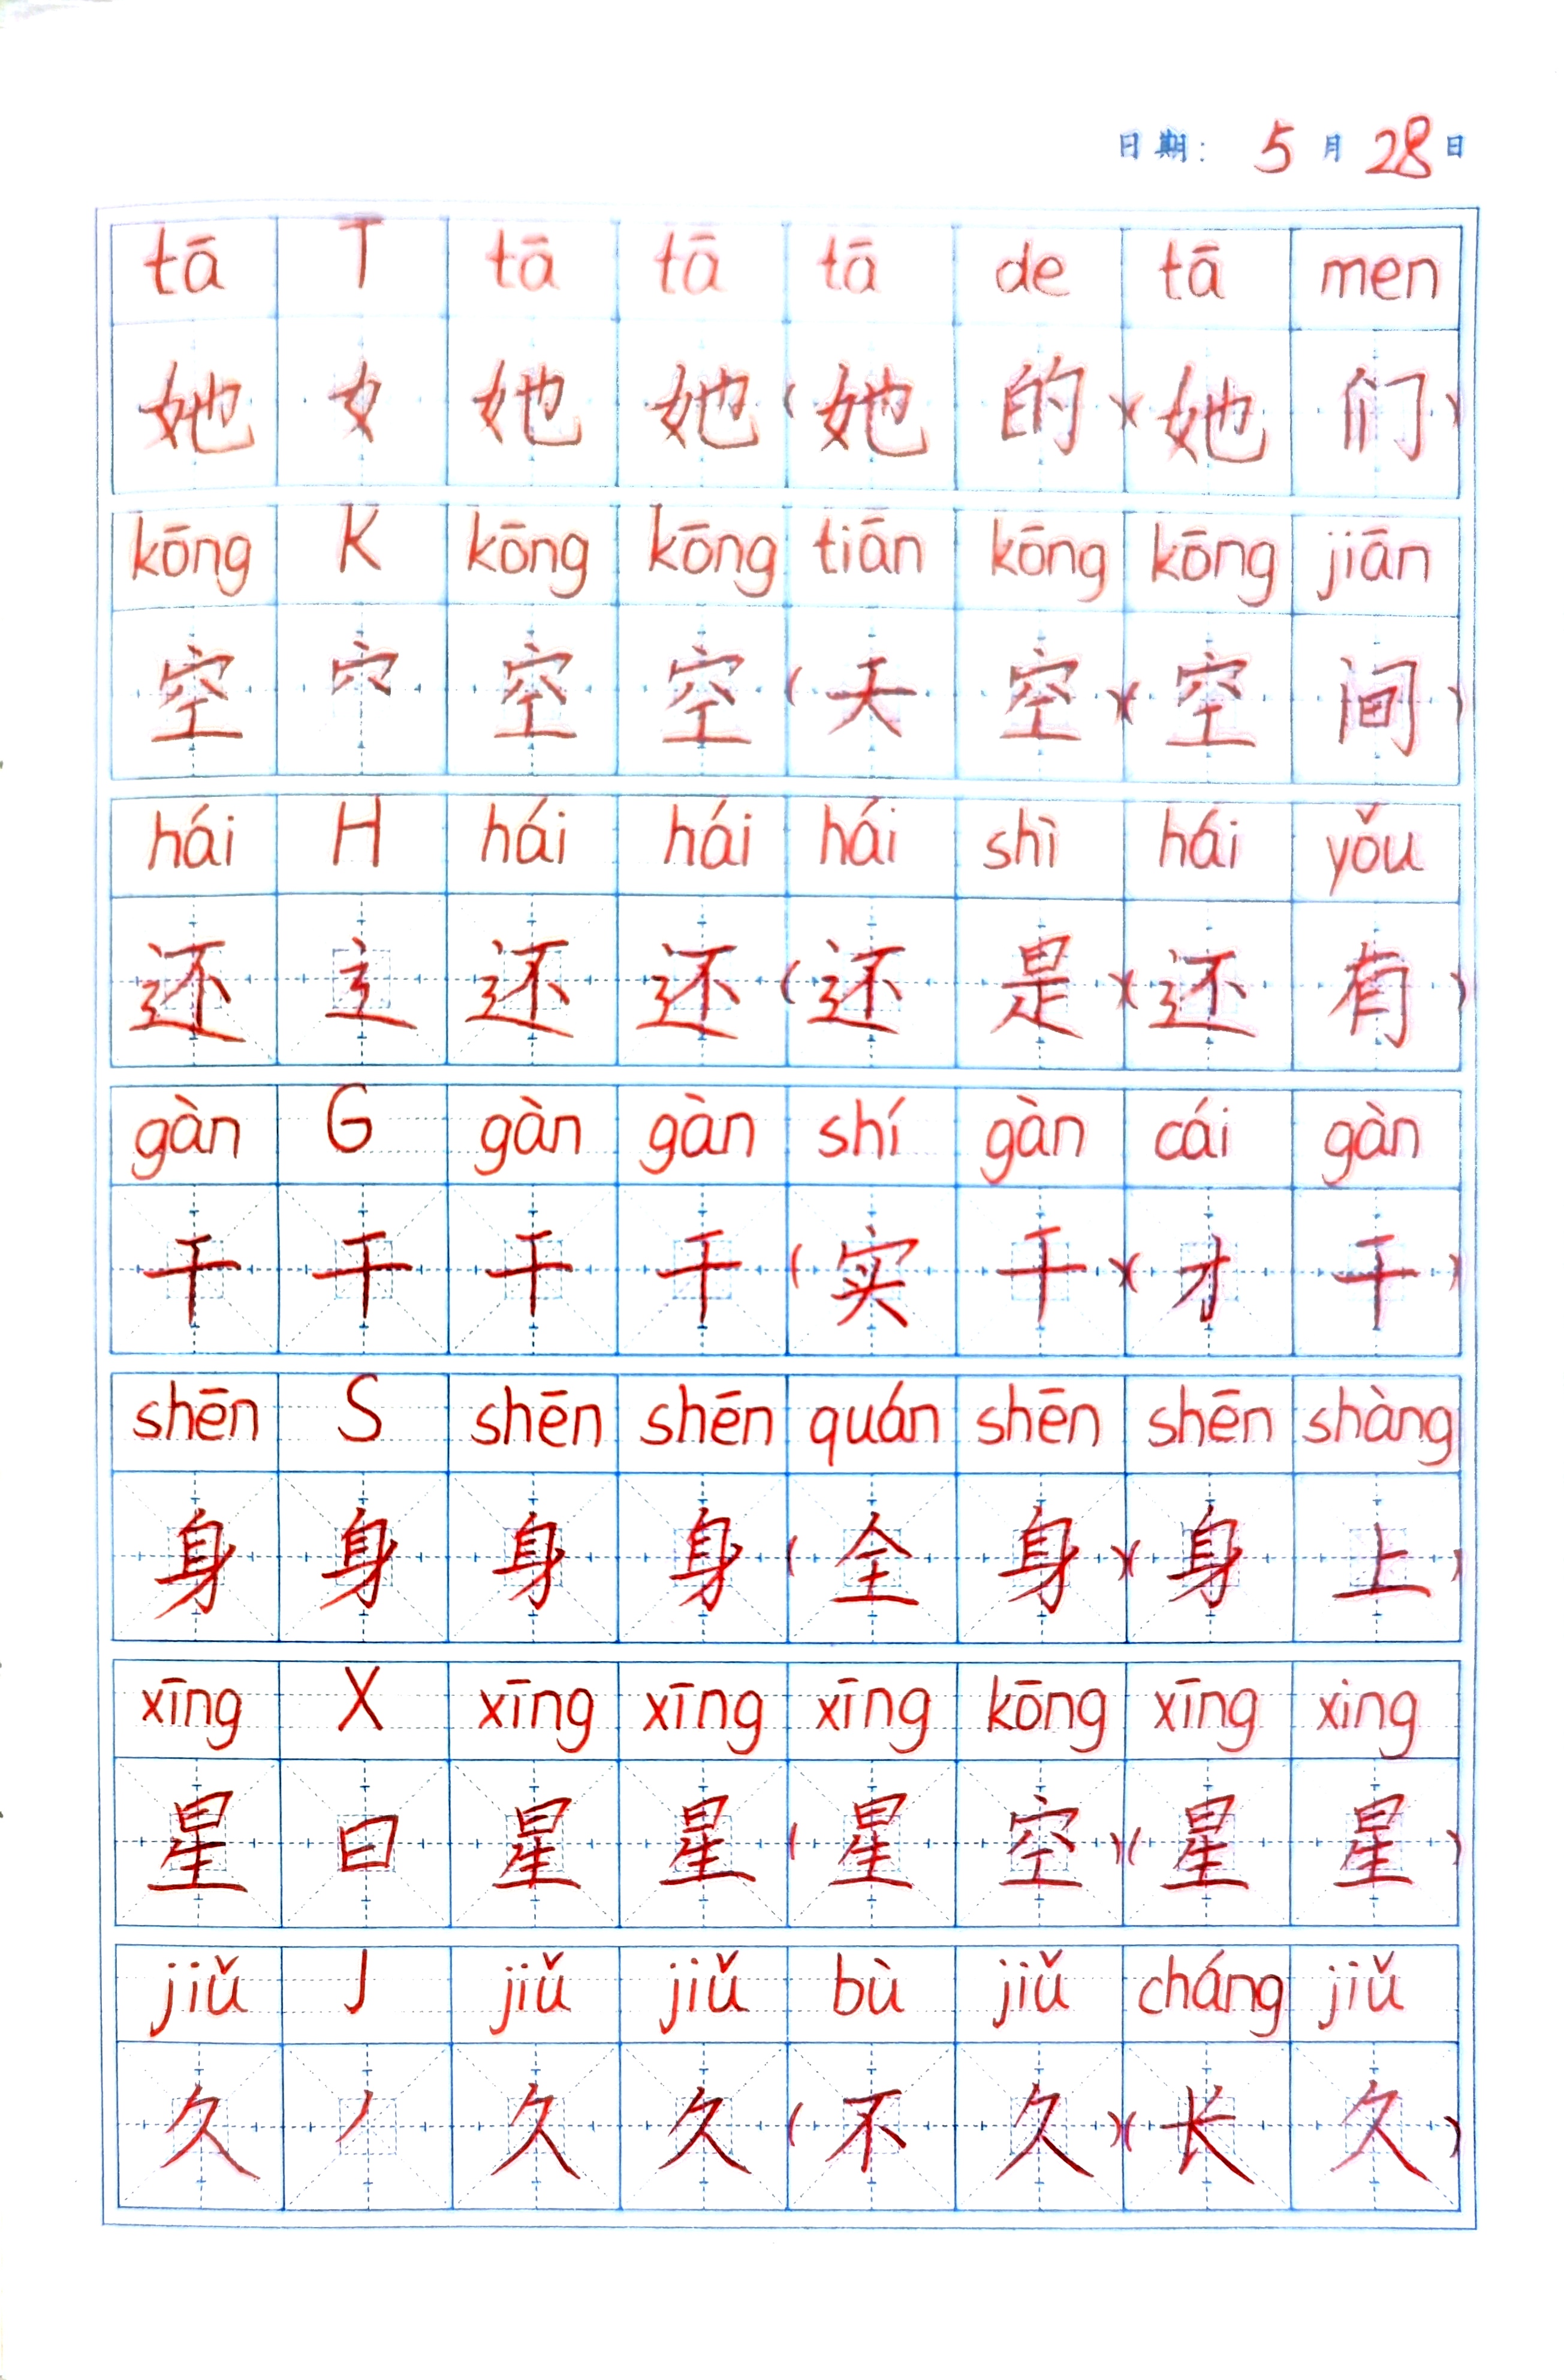 日期： 5 月 28 日
tā T tā tā tā de tā men
她 女 她 她 (她 的)(她 们)
kōng K kōng kōng tiān kōng kōng jiān
空 穴 空 空 (天 空)(空 间)
hái H hái hái hái shì hái yǒu
还 辶 还 还 (还 是)(还 有)
gàn G gàn gàn shí gàn cái gàn
干 干 干 干 (实 干)(才 干)
shēn S shēn shēn quán shēn shēn shàng
身 身 身 身 (全 身)(身 上)
xīng X xīng xīng xīng kōng xīng xing
星 日 星 星 (星 空)(星 星)
jiǔ J jiǔ jiǔ bù jiǔ cháng jiǔ
久 丿 久 久 (不 久)(长 久)